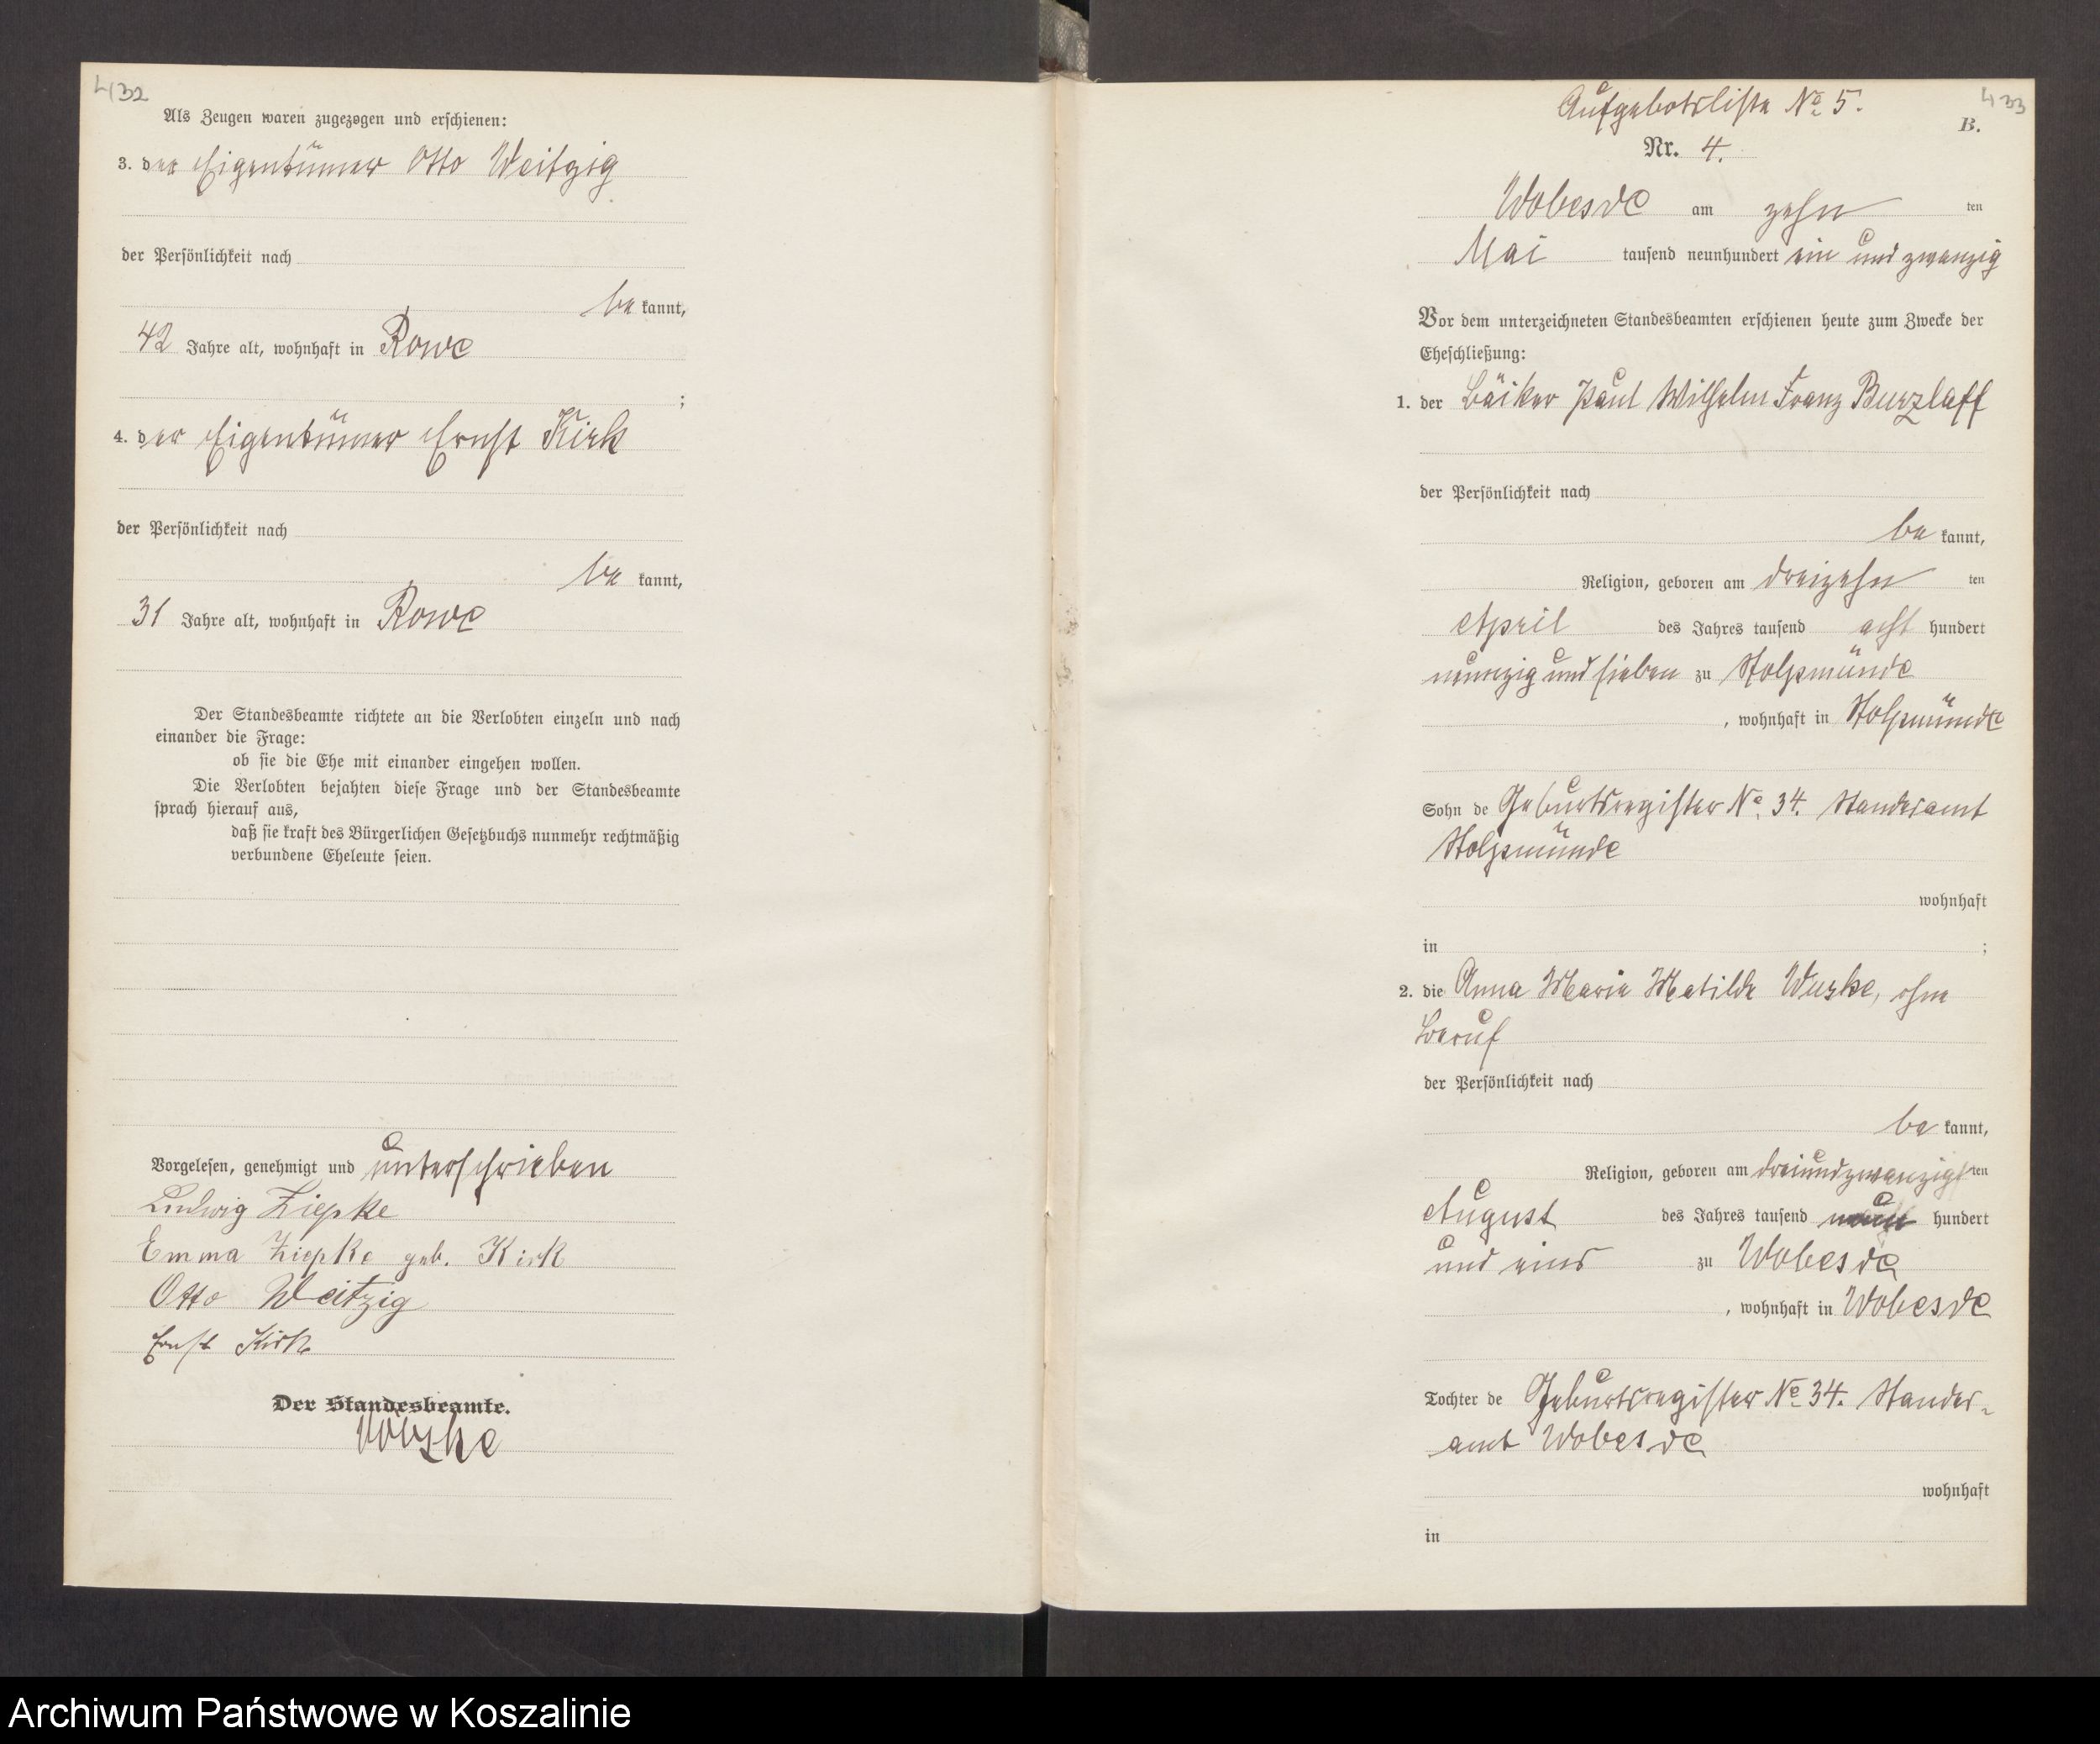 432
Als Zeugen waren zugezogen und erschienen:
3. der Eigentümer Otto Weitzig
der Persönlichkeit nach
be kannt,
42 Jahre alt, wohnhaft in Rowe
;
4. der Eigentümer Ernst Kirk
der Persönlichkeit nach
be kannt,
31 Jahre alt, wohnhaft in Rowe
Der Standesbeamte richtete an die Verlobten einzeln und nach
einander die Frage:
ob sie die Ehe mit einander eingehen wollen.
Die Verlobten bejahten diese Frage und der Standesbeamte
sprach hierauf aus,
daß sie kraft des Bürgerlichen Gesetzbuchs nunmehr rechtmäßig
verbundene Eheleute seien.
Vorgelesen, genehmigt und unterschrieben
Ludwig Ziepke
Emma Ziepke geb. Kirk
Otto Weitzig
Ernst Kirk
Der Standesbeamte.
433
Aufgebotsliste No 5.
B.
Nr. 4.
Wobesde am zehn ten
Mai tausend neunhundert ein und zwanzig
Vor dem unterzeichneten Standesbeamten erschienen heute zum Zwecke der
Eheschließung:
1. der Bäcker Paul Wilhelm Franz Burzlaff
der Persönlichkeit nach
be kannt,
Religion, geboren am dreizehn ten
April des Jahres tausend acht hundert
neunzig und sieben zu Stolpmünde
, wohnhaft in Stolpmünde
Sohn de Geburtsregister No. 34. Standesamt
Stolpmünde
wohnhaft
in ;
2. die Anna Marie Matilde Wuzke, ohne
Beruf
der Persönlichkeit nach
be kannt,
Religion, geboren am dreiundzwanzigsten
August des Jahres tausend neun hundert
und eins zu Wobesde
, wohnhaft in Wobesde
Tochter de Geburtsregister No 34. Standes-
amt Wobesde
wohnhaft
in
Archiwum Państwowe w Koszalinie